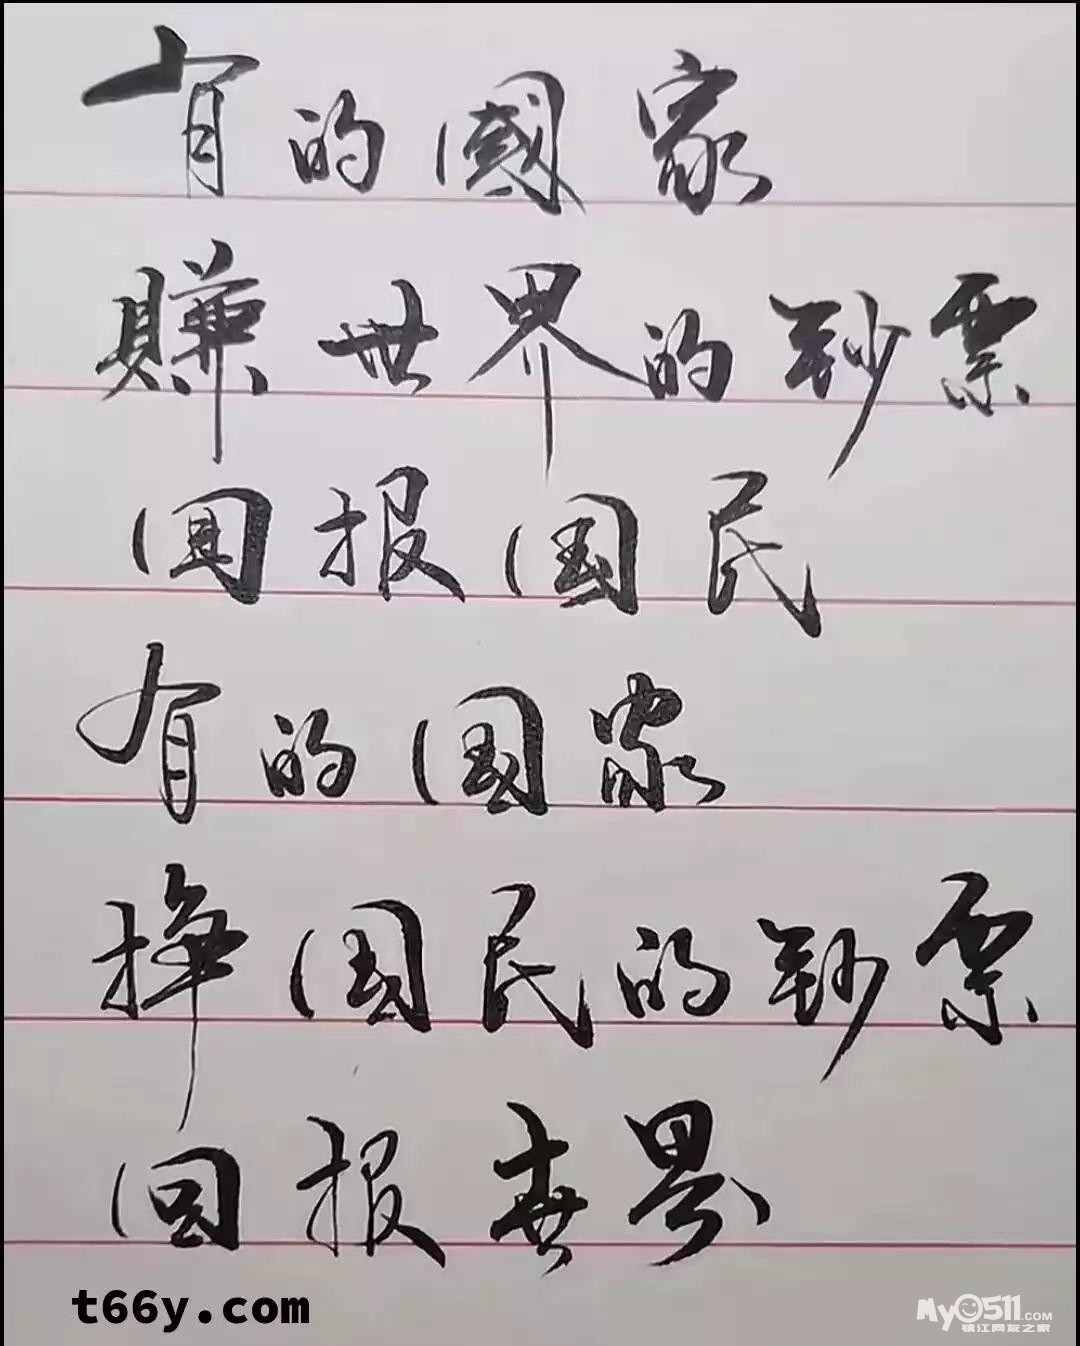 有的國家
賺世界的鈔票
回报国民
有的国家
挣国民的钞票
回报世界
t66y.com
My0511.COM
镇江网友之家